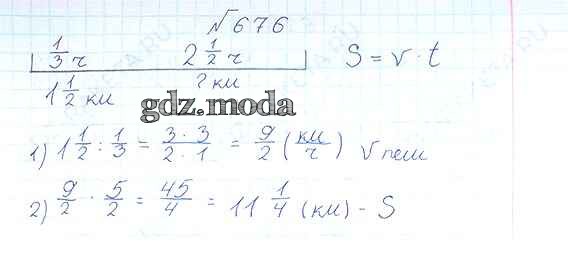 №676
1/3 ч 2 1/2 ч S = v · t
1 1/2 км ? км
gdz.moda
1) 1 1/2 : 1/3 = 3·3/2·1 = 9/2 (км/ч) v пеш
2) 9/2 · 5/2 = 45/4 = 11 1/4 (км) - S